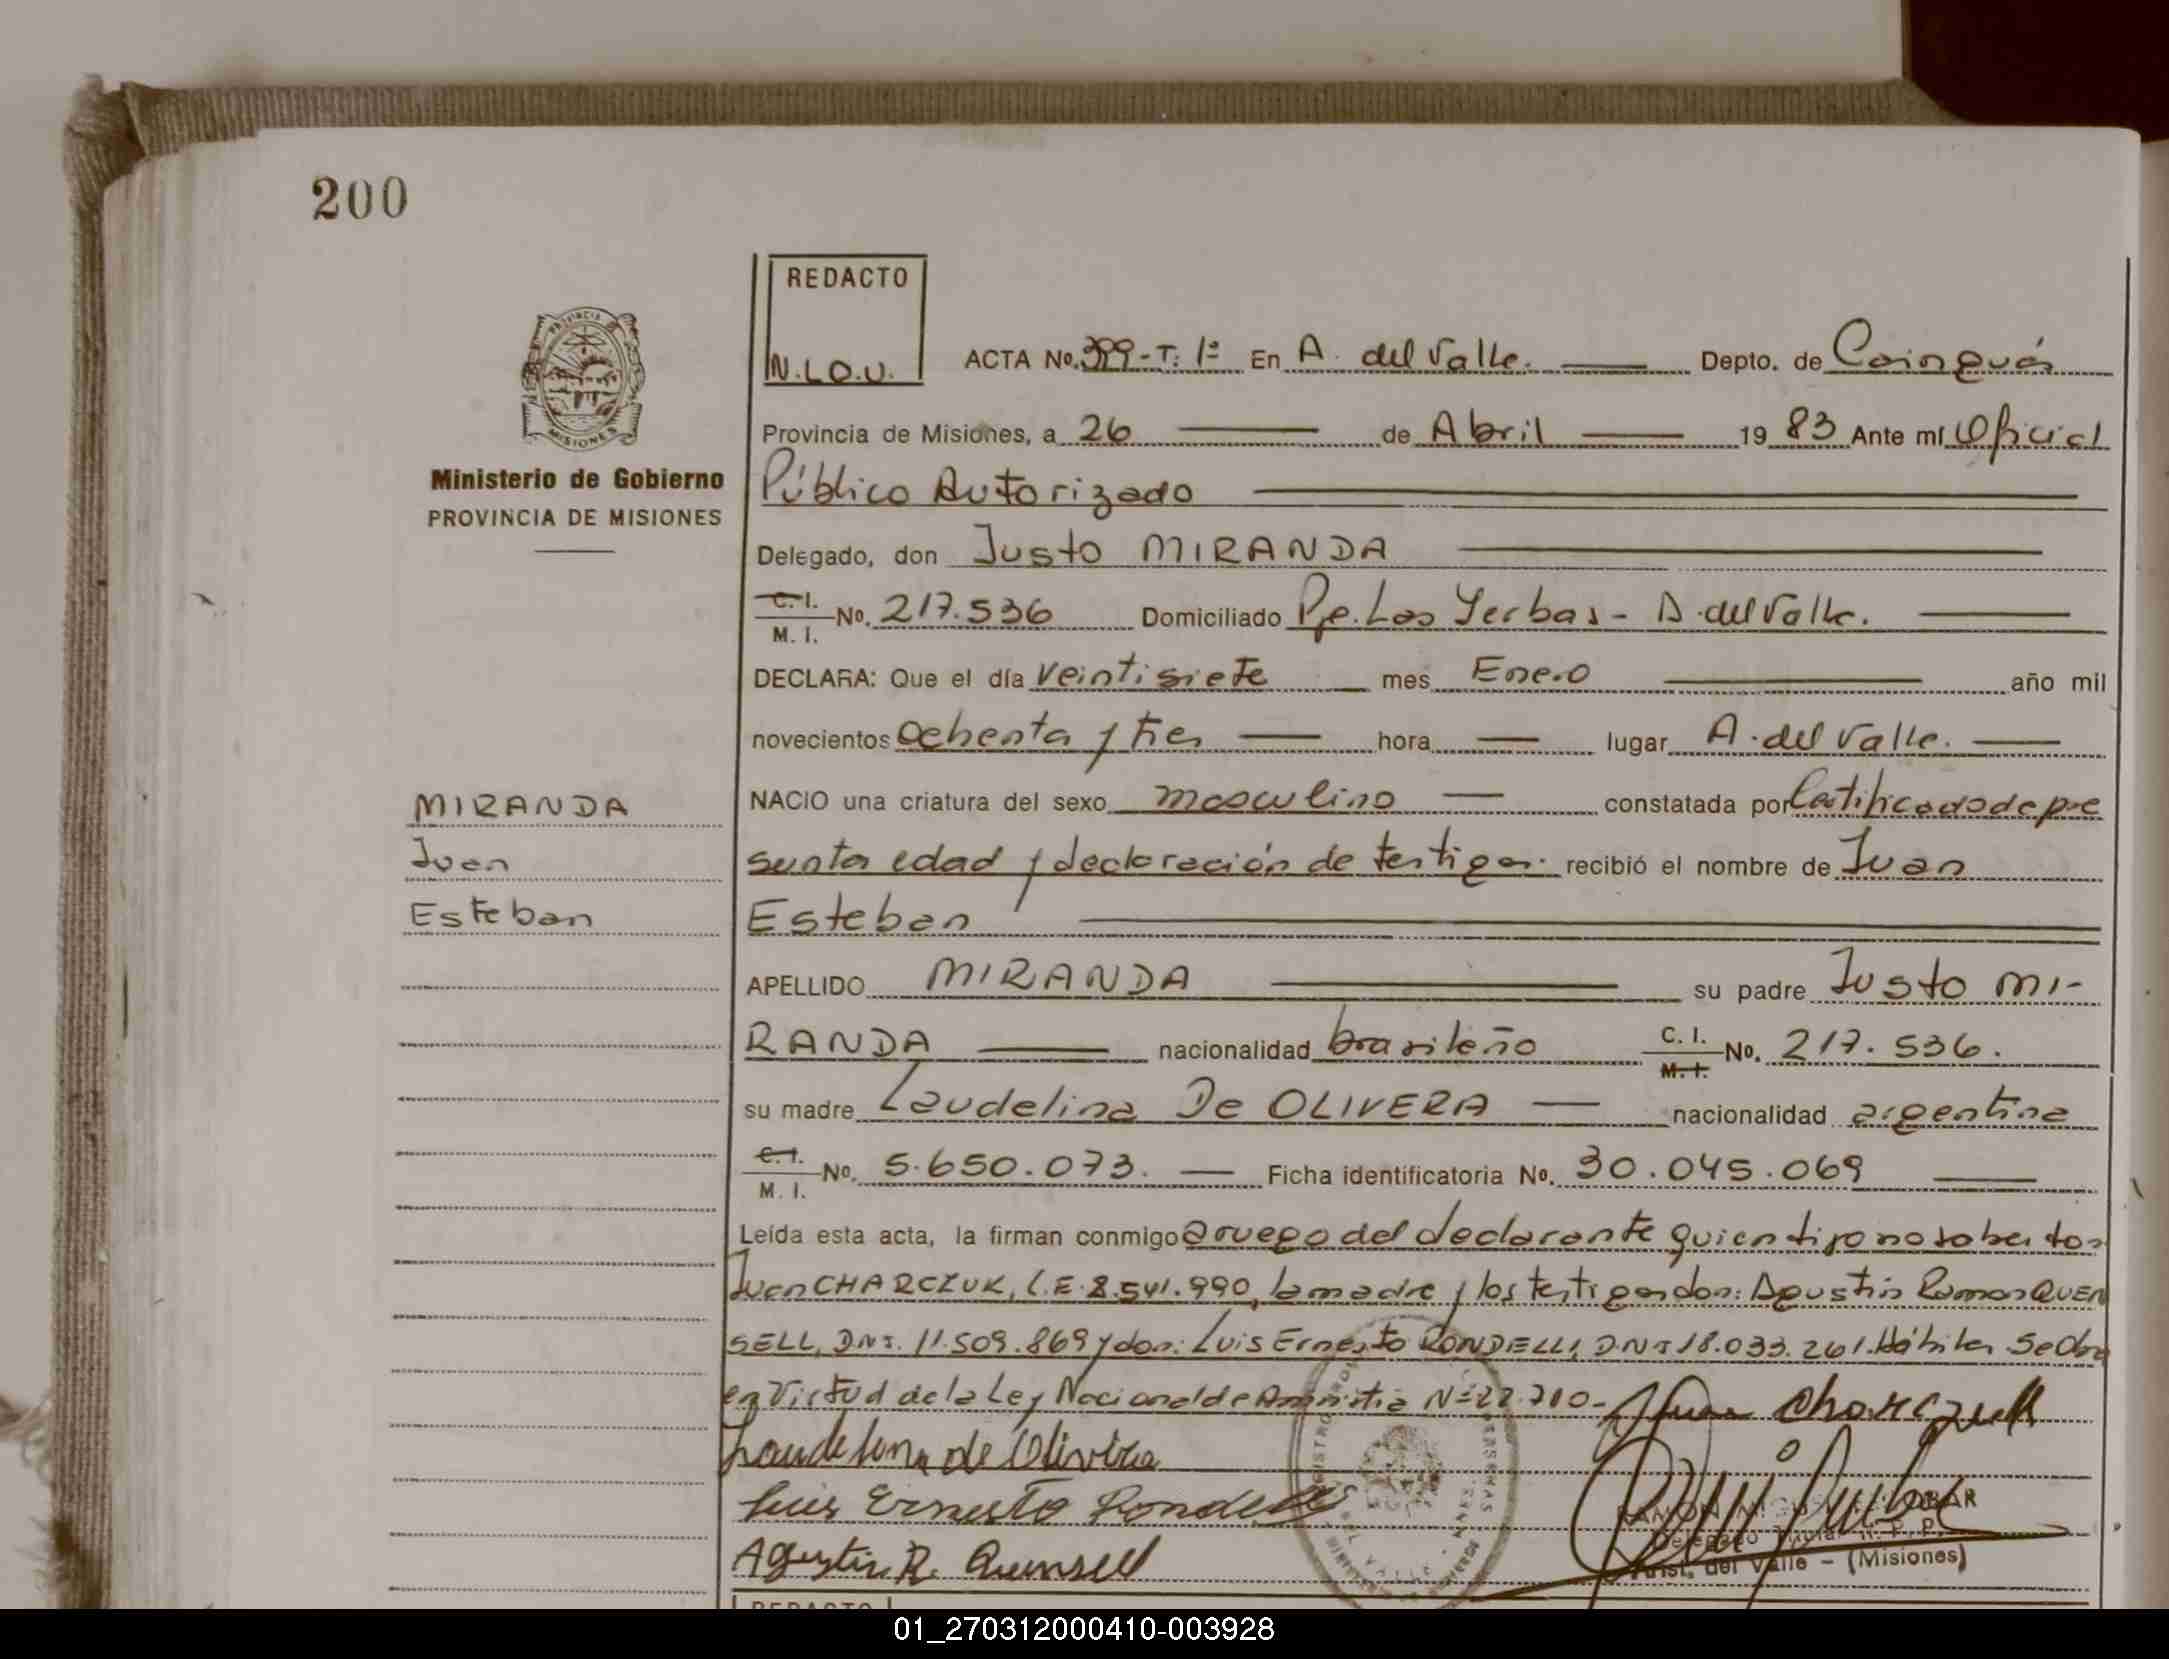 200
REDACTO
N.L.O.U.
PROVINCIA
MISIONES
Ministerio de Gobierno
PROVINCIA DE MISIONES
ACTA No. 399-T: 1º En A. del Valle. Depto. de Cainguás
Provincia de Misiones, a 26 de Abril 1983 Ante mí Oficial
Público Autorizado
Delegado, don Justo MIRANDA
C. I. M. I. No. 217.536 Domiciliado Pje. Las Yerbas - A. del Valle.
DECLARA: Que el día veintisiete mes Enero año mil
novecientos ochenta y tres hora lugar A. del Valle.
MIRANDA
NACIO una criatura del sexo masculino constatada por Certificado de pre
Juan
sunta edad y declaración de testigos. recibió el nombre de Juan
Esteban
Esteban
APELLIDO MIRANDA su padre Justo MI-
RANDA nacionalidad brasileño C. I. M. I. No. 217.536.
su madre Laudelina De OLIVERA nacionalidad argentina
C. I. M. I. No. 5.650.073. Ficha identificatoria No. 30.045.069
Leída esta acta, la firman conmigo a ruego del declarante quien dijo no saber don
Juan CHARCZUK, L.E. 8.541.990, la madre y los testigos don: Agustín Ramon QUEN
SELL, DNI. 11.509.869 y don: Luis Ernesto RONDELLI, DNI 18.033.261. Hábiles. Se Obra
en Virtud de la Ley Nacional de Amnistia Nº 22.710-
Juan Charczuk
Laudelina de Olivera
Luis Ernesto Rondelli
RAMON ESCOBAR
Delegado Titular R. P. P.
Agustin R. Quensell
Arist. del Valle - (Misiones)
REDACTO
01_270312000410-003928